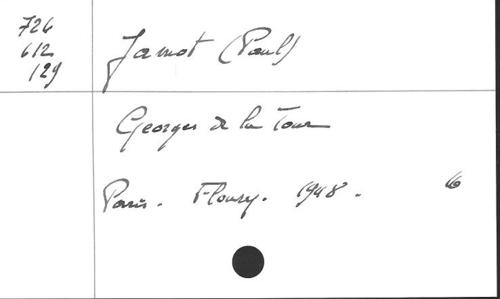 726
612
129
Jamot (Paul)
Georges de la Tour
Paris. Floury. 1948.